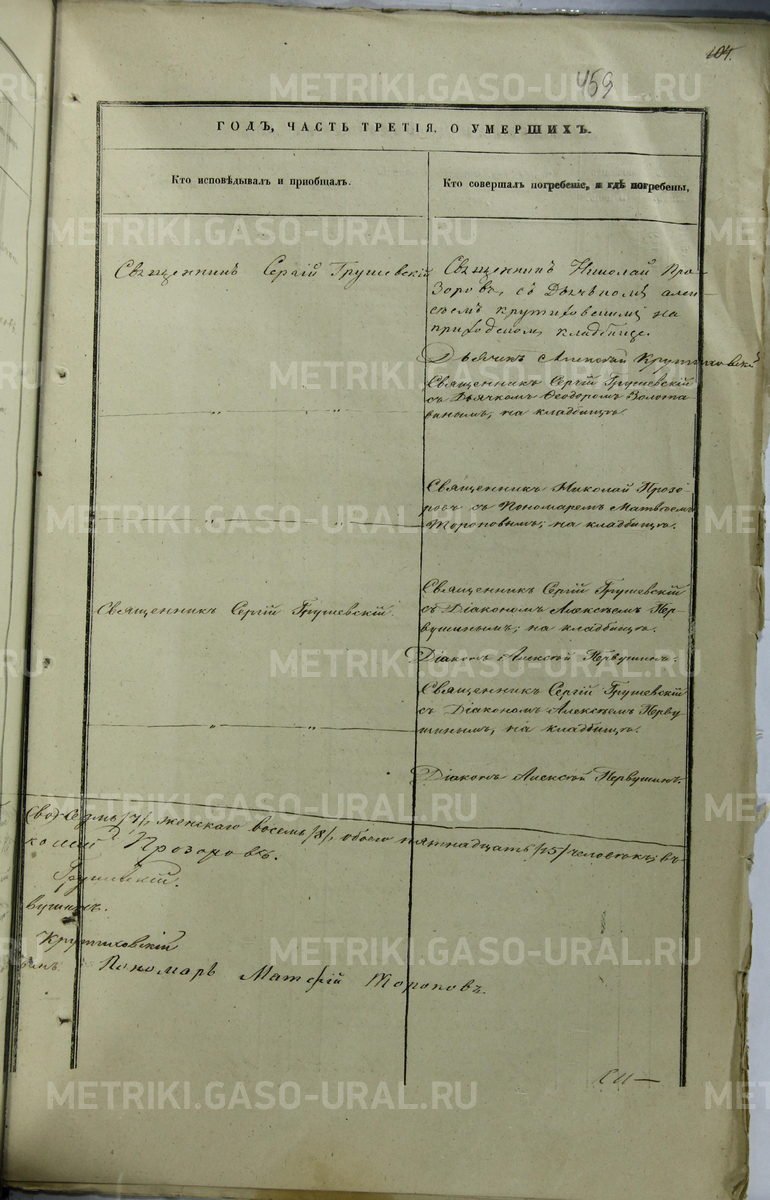 104.
459
ГОДЪ, ЧАСТЬ ТРЕТІЯ, О УМЕРШИХЪ.
Кто исповѣдывалъ и пріобщалъ.
Кто совершалъ погребеніе, и гдѣ погребены,
Священникъ Сергій Грушевскій
Священникъ Николай Про-
зоровъ, съ Дьячкомъ Алек-
сѣемъ Крутиховскимъ на
приходскомъ кладбищѣ.
Дьячекъ Алексѣй Крутиховскій
" "
Священникъ Сергій Грушевскій
съ Дьячкомъ Ѳеодоромъ Золота
винымъ, на кладбищѣ.
" "
Священникъ Николай Прозо-
ровъ съ Пономаремъ Матвѣемъ
Тороповымъ, на кладбищѣ.
Священникъ Сергій Грушевскій
Священникъ Сергій Грушевскій
съ Діакономъ Алексѣемъ Пер-
вушинымъ, на кладбищѣ.
Діаконъ Алексѣй Первушинъ.
" "
Священникъ Сергій Грушевскій
съ Діакономъ Алексѣемъ Перву
шинымъ, на кладбищѣ.
Діаконъ Алексѣй Первушинъ.
седмь /7/, женскаго восемь /8/, обоего пятнадцать /15/ человѣкъ; въ
колай Прозоровъ.
Грушевскій.
вушинъ.
Крутиховскій
Пономарь Матѳій Тороповъ.
METRIKI.GASO-URAL.RU